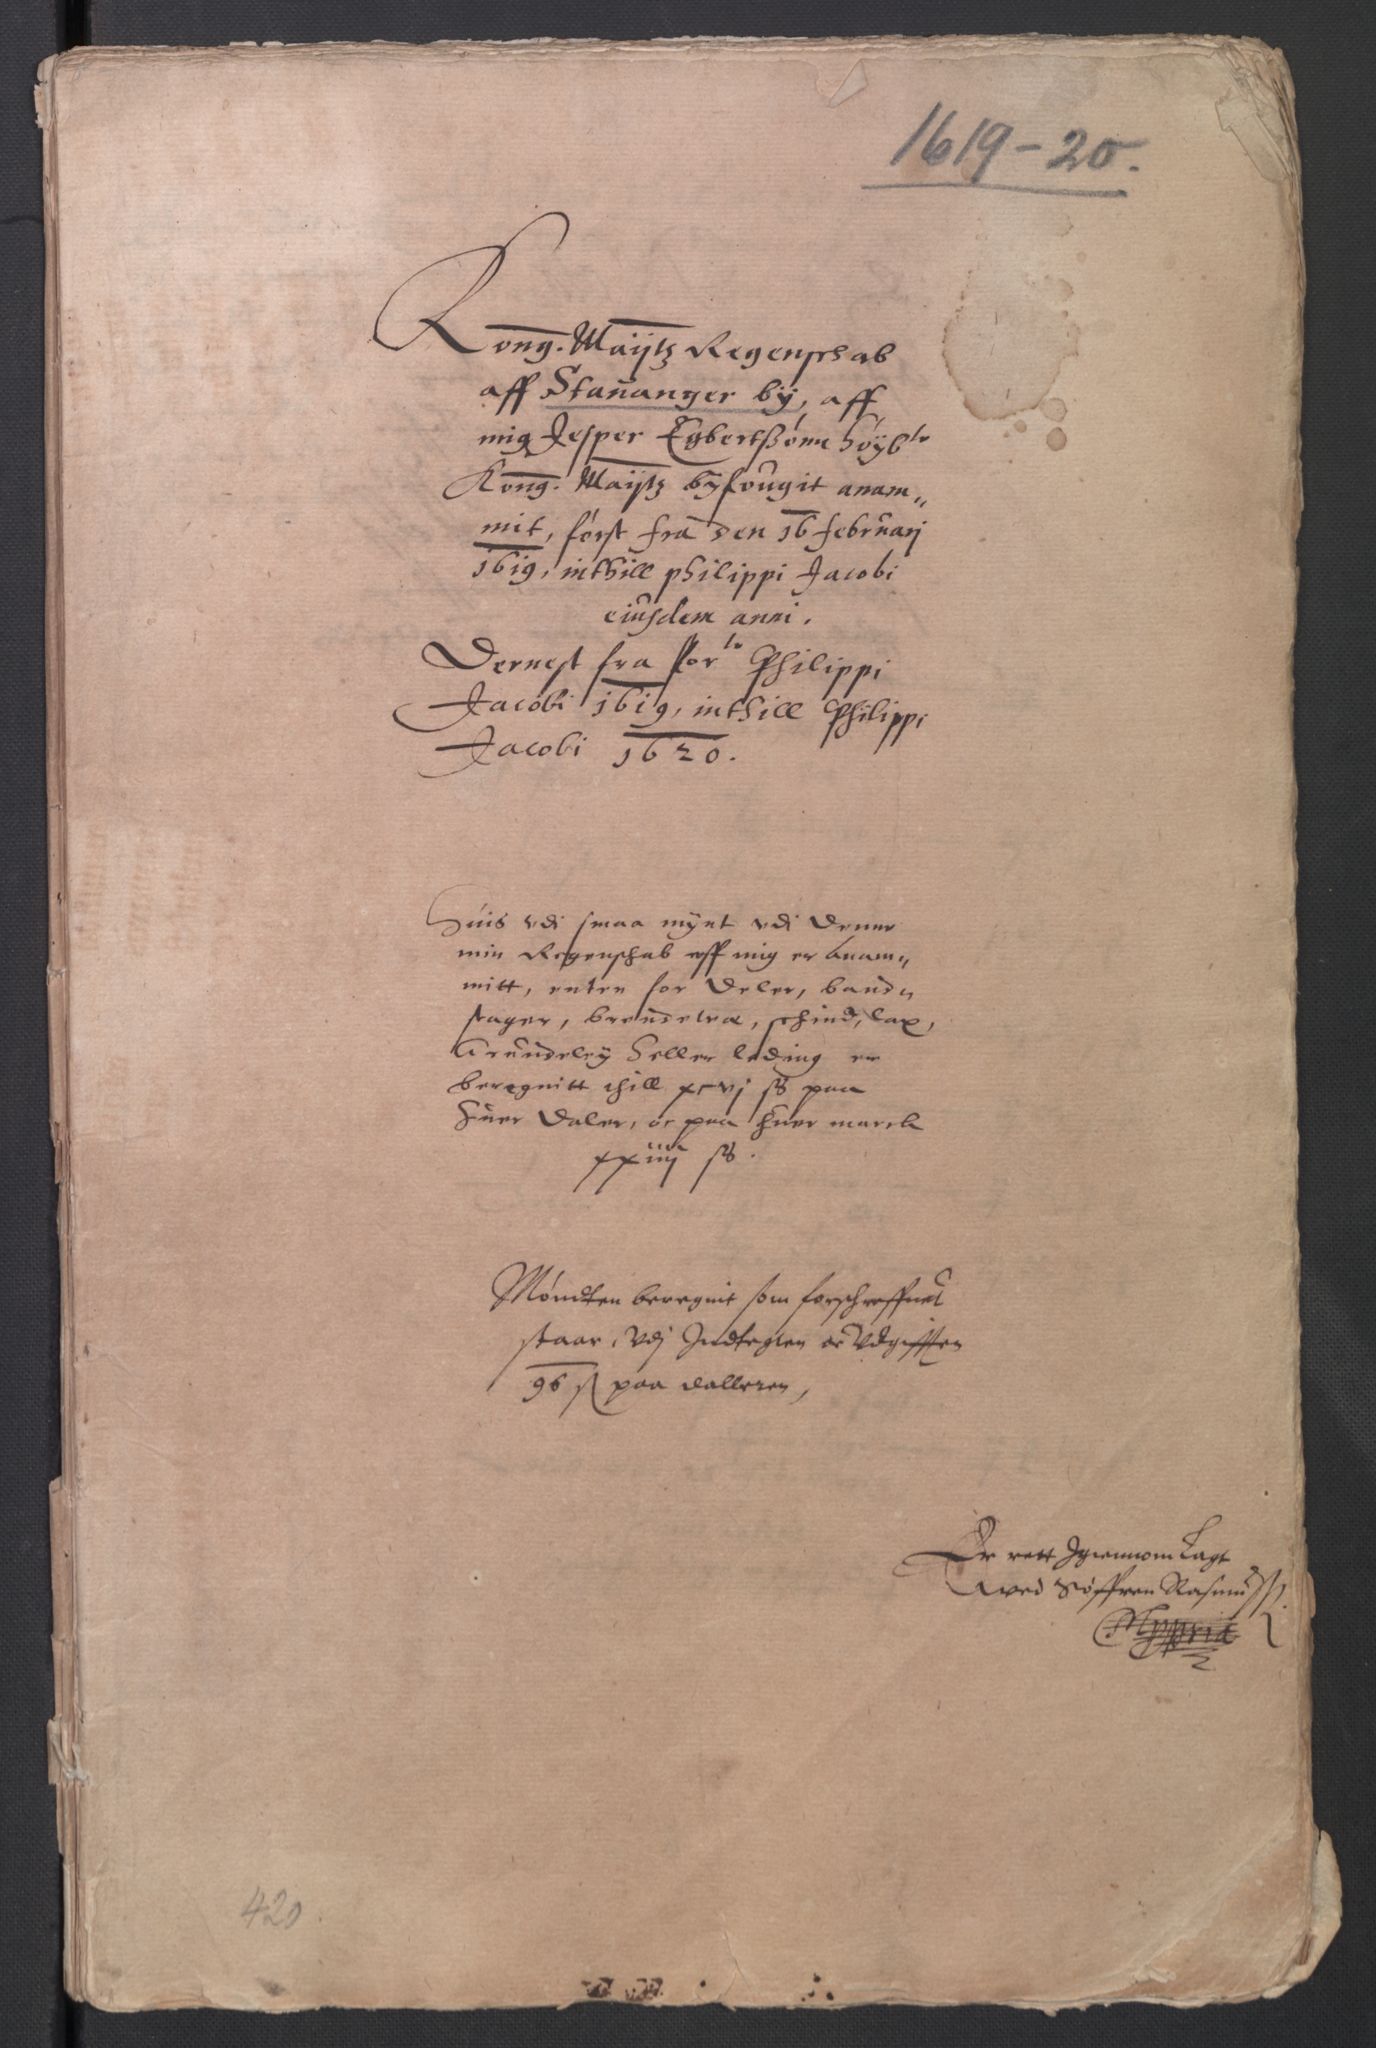 1619-20.
Kong. Maÿtz Regenschab
aff Stauanger bÿ, aff
mig Jesper Egbertßönn höÿb^te
Kong. Maÿtz bÿfougit anam„
mit, först fra den 16 februarj
1619, inthill philippi Jacobi
eiusdem anni.
Dernest fra for^te Philippi
Jacobi 1619, inthill Philippi
Jacobi 1620.
Huis vdi smaa mÿnt vdi Denne
min Regenschab aff mig er Anam„
mitt, enten for Deler, baand„
stager, brendeved, schind, lax,
Grundeleÿ heller leding er
beregnitt thill xcvj ß paa
huer Daler, oc paa huer marck
xxiiij ß.
Möndten beregnit som forschreffuet
staar, Vdj Indtegten oc Vdgifften
96 ß paa dalleren,
Er rett Igiennom Lagt
wed Söffren Rasmuss.
Mppria
420